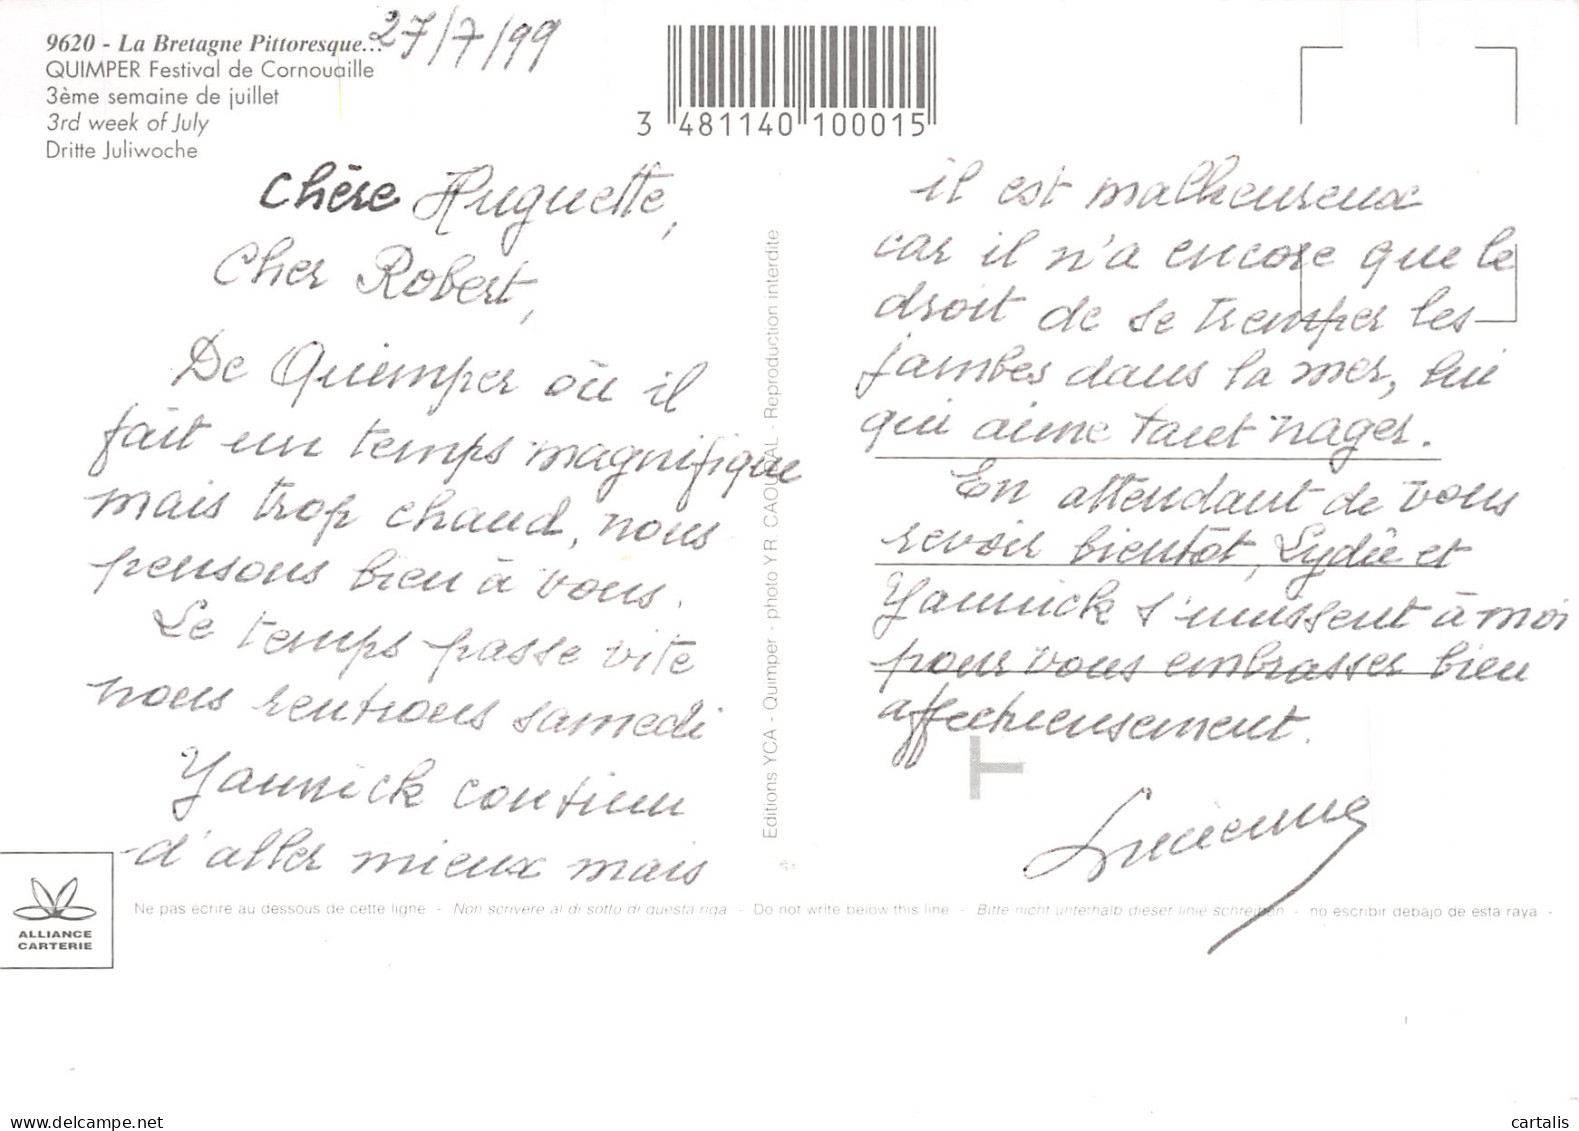 9620 - La Bretagne Pittoresque...
27/7/99
QUIMPER Festival de Cornouaille
3ème semaine de juillet
3rd week of July
Dritte Juliwoche
3 481140 100015
Chère Huguette,
Cher Robert,
De Quimper où il
fait un temps magnifique
mais trop chaud, nous
pensons bien à vous.
Le temps passe vite
nous rentrons samedi
Yannick continu
d'aller mieux mais
Editions YCA - Quimper - photo Y.R. CAOUDAL - Reproduction interdite
il est malheureux
car il n'a encore que le
droit de se tremper les
jambes dans la mer, lui
qui aime tant nager.
En attendant de vous
revoir bientôt, Lydie et
Yannick s'unissent à moi
pour vous embrasser bien
affectueusement.
T
Lucienne
ALLIANCE
CARTERIE
Ne pas écrire au dessous de cette ligne - Non scrivere al di sotto di questa riga - Do not write below this line - Bitte nicht unterhalb dieser linie schreiben - no escribir debajo de esta raya -
delcampe.net
cartalis